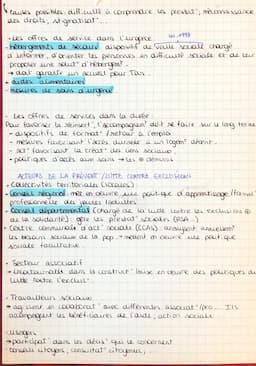 Causes possibles: difficulté à comprendre les prestat°, méconnaissance
des droits, stigmatisat°...
- les offres de service dans l'urgence
loi 1998
- hébergements de secours : dispositif de veille sociale chargé
d'informer, d'orienter les personnes en difficulté sociale et de leur
proposer une solut° d'hébergemt.
→ doit garantir un accueil pour tous.
- aides alimentaires
- mesures de soins d'urgence
- Les offres de services dans la durée :
Pour favoriser la réinsert°, l'accompagnemt doit se faire sur le long terme
- dispositifs de format° / retour à l'emploi
- mesures favorisant l'accès durable à un logemt décent
- act° favorisant la créat° de liens sociaux
- politiques d'accès aux soins → les + démunis
ACTEURS DE LA PRÉVENT° / LUTTE CONTRE EXCLUSION
- Collectivités territoriales (locales) :
- Conseil régional : met en œuvre une politique d'apprentissage / format°
professionnelle des jeunes / adultes
- Conseil départemental (chargé de la lutte contre les exclusions et
de la solidarité) : gère les prestat° sociales (RSA...)
- Centre communal d'act° sociale (CCAS) : analysent annuellemt
les besoins sociaux de la pop. → mettent en œuvre une politique
sociale facultative
- Secteur associatif
→ incontournable dans la construct° / mise en œuvre des politiques de
lutte contre l'exclus°.
- Travailleurs sociaux
→ agissent en collaborat° avec différentes associat° / pro... Ils
accompagnent les bénéficiaires de l'aide / action sociale
- Usagers
→ participat° dans les décis° qui le concernent
conseils citoyens, consultat° citoyennes,